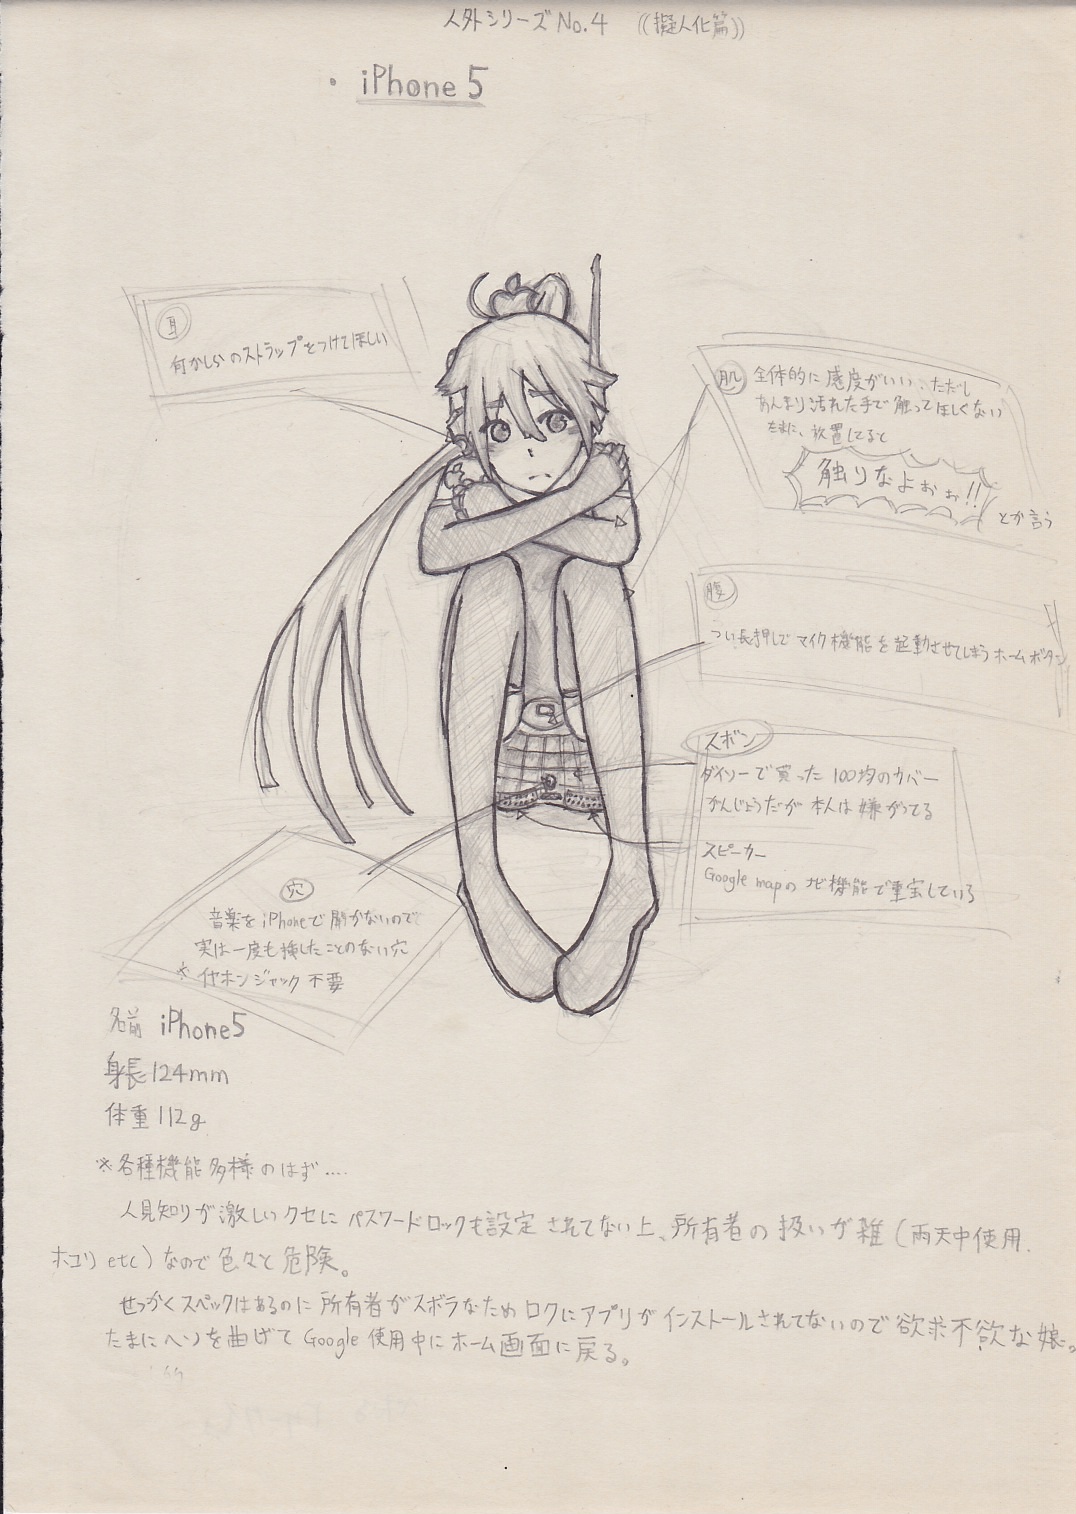 人外シリーズ No.4 ((擬人化篇))
・iPhone 5
耳
何かしらのストラップをつけてほしい
肌
全体的に感度がいい、ただし
あんまり汚れた手で触ってほしくない
たまに、放置してると
触りなよぉぉ!!
とか言う
腹
つい長押しで マイク機能を起動させてしまうホームボタン
ズボン
ダイソーで買った 100均のカバー
がんじょうだが 本人は嫌がってる
スピーカー
Google mapの ナビ機能で重宝している
穴
音楽をiPhoneで聞かないので
実は一度も挿したことのない穴
※イヤホンジャック不要
名前 iPhone5
身長124mm
体重112g
※各種機能多様のはず....
人見知りが激しいクセに パスワードロックも設定されてない上、所有者の扱いが雑(雨天中使用、
ホコリ etc)なので色々と危険。
せっかくスペックはあるのに所有者がズボラなためロクにアプリがインストールされてないので欲求不欲な娘。
たまにヘソを曲げてGoogle使用中にホーム画面に戻る。